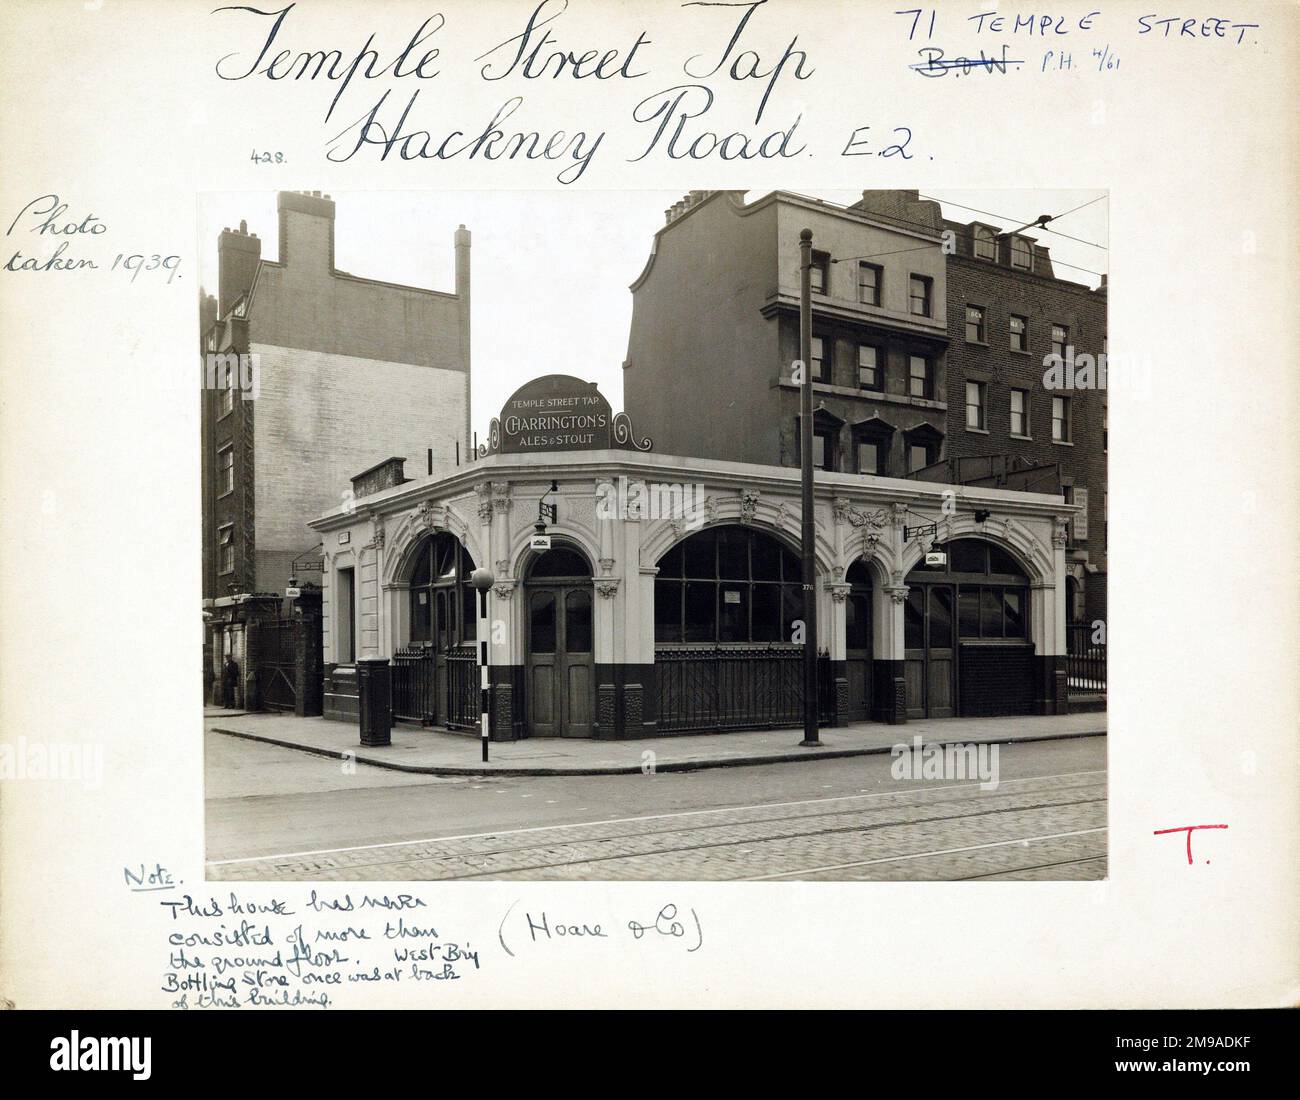 Temple Street Tap
71 TEMPLE STREET.
B.o W. P.H. 4/61
428. Hackney Road. E.2.
Photo
taken 1939.
TEMPLE STREET TAP.
CHARRINGTON'S
ALES & STOUT
376
T.
Note.
This house has never
consisted of more than
the ground floor. West B'ry
Bottling Store once was at back
of this building.
(Hoare & Co)
alamy
alamy
alamy
alamy
Image ID: 2M9ADKF
www.alamy.com